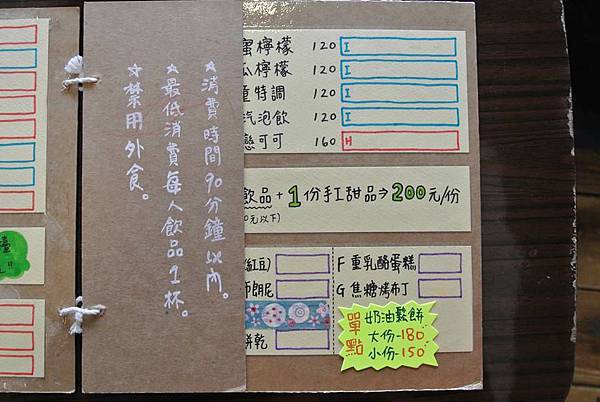 ☆消費時間90分鐘以內。
★最低消費每人飲品1杯。
☆禁用外食。
蜜檸檬 120 I
瓜檸檬 120 I
童特調 120 I
汽泡飲 120 I
戀可可 160 H
飲品+1份手工甜品→200元/份
0元以下)
(紅豆)
布朗尼
餅乾
F 重乳酪蛋糕
G 焦糖烤布丁
單點
奶油鬆餅
大份-180
小份-150